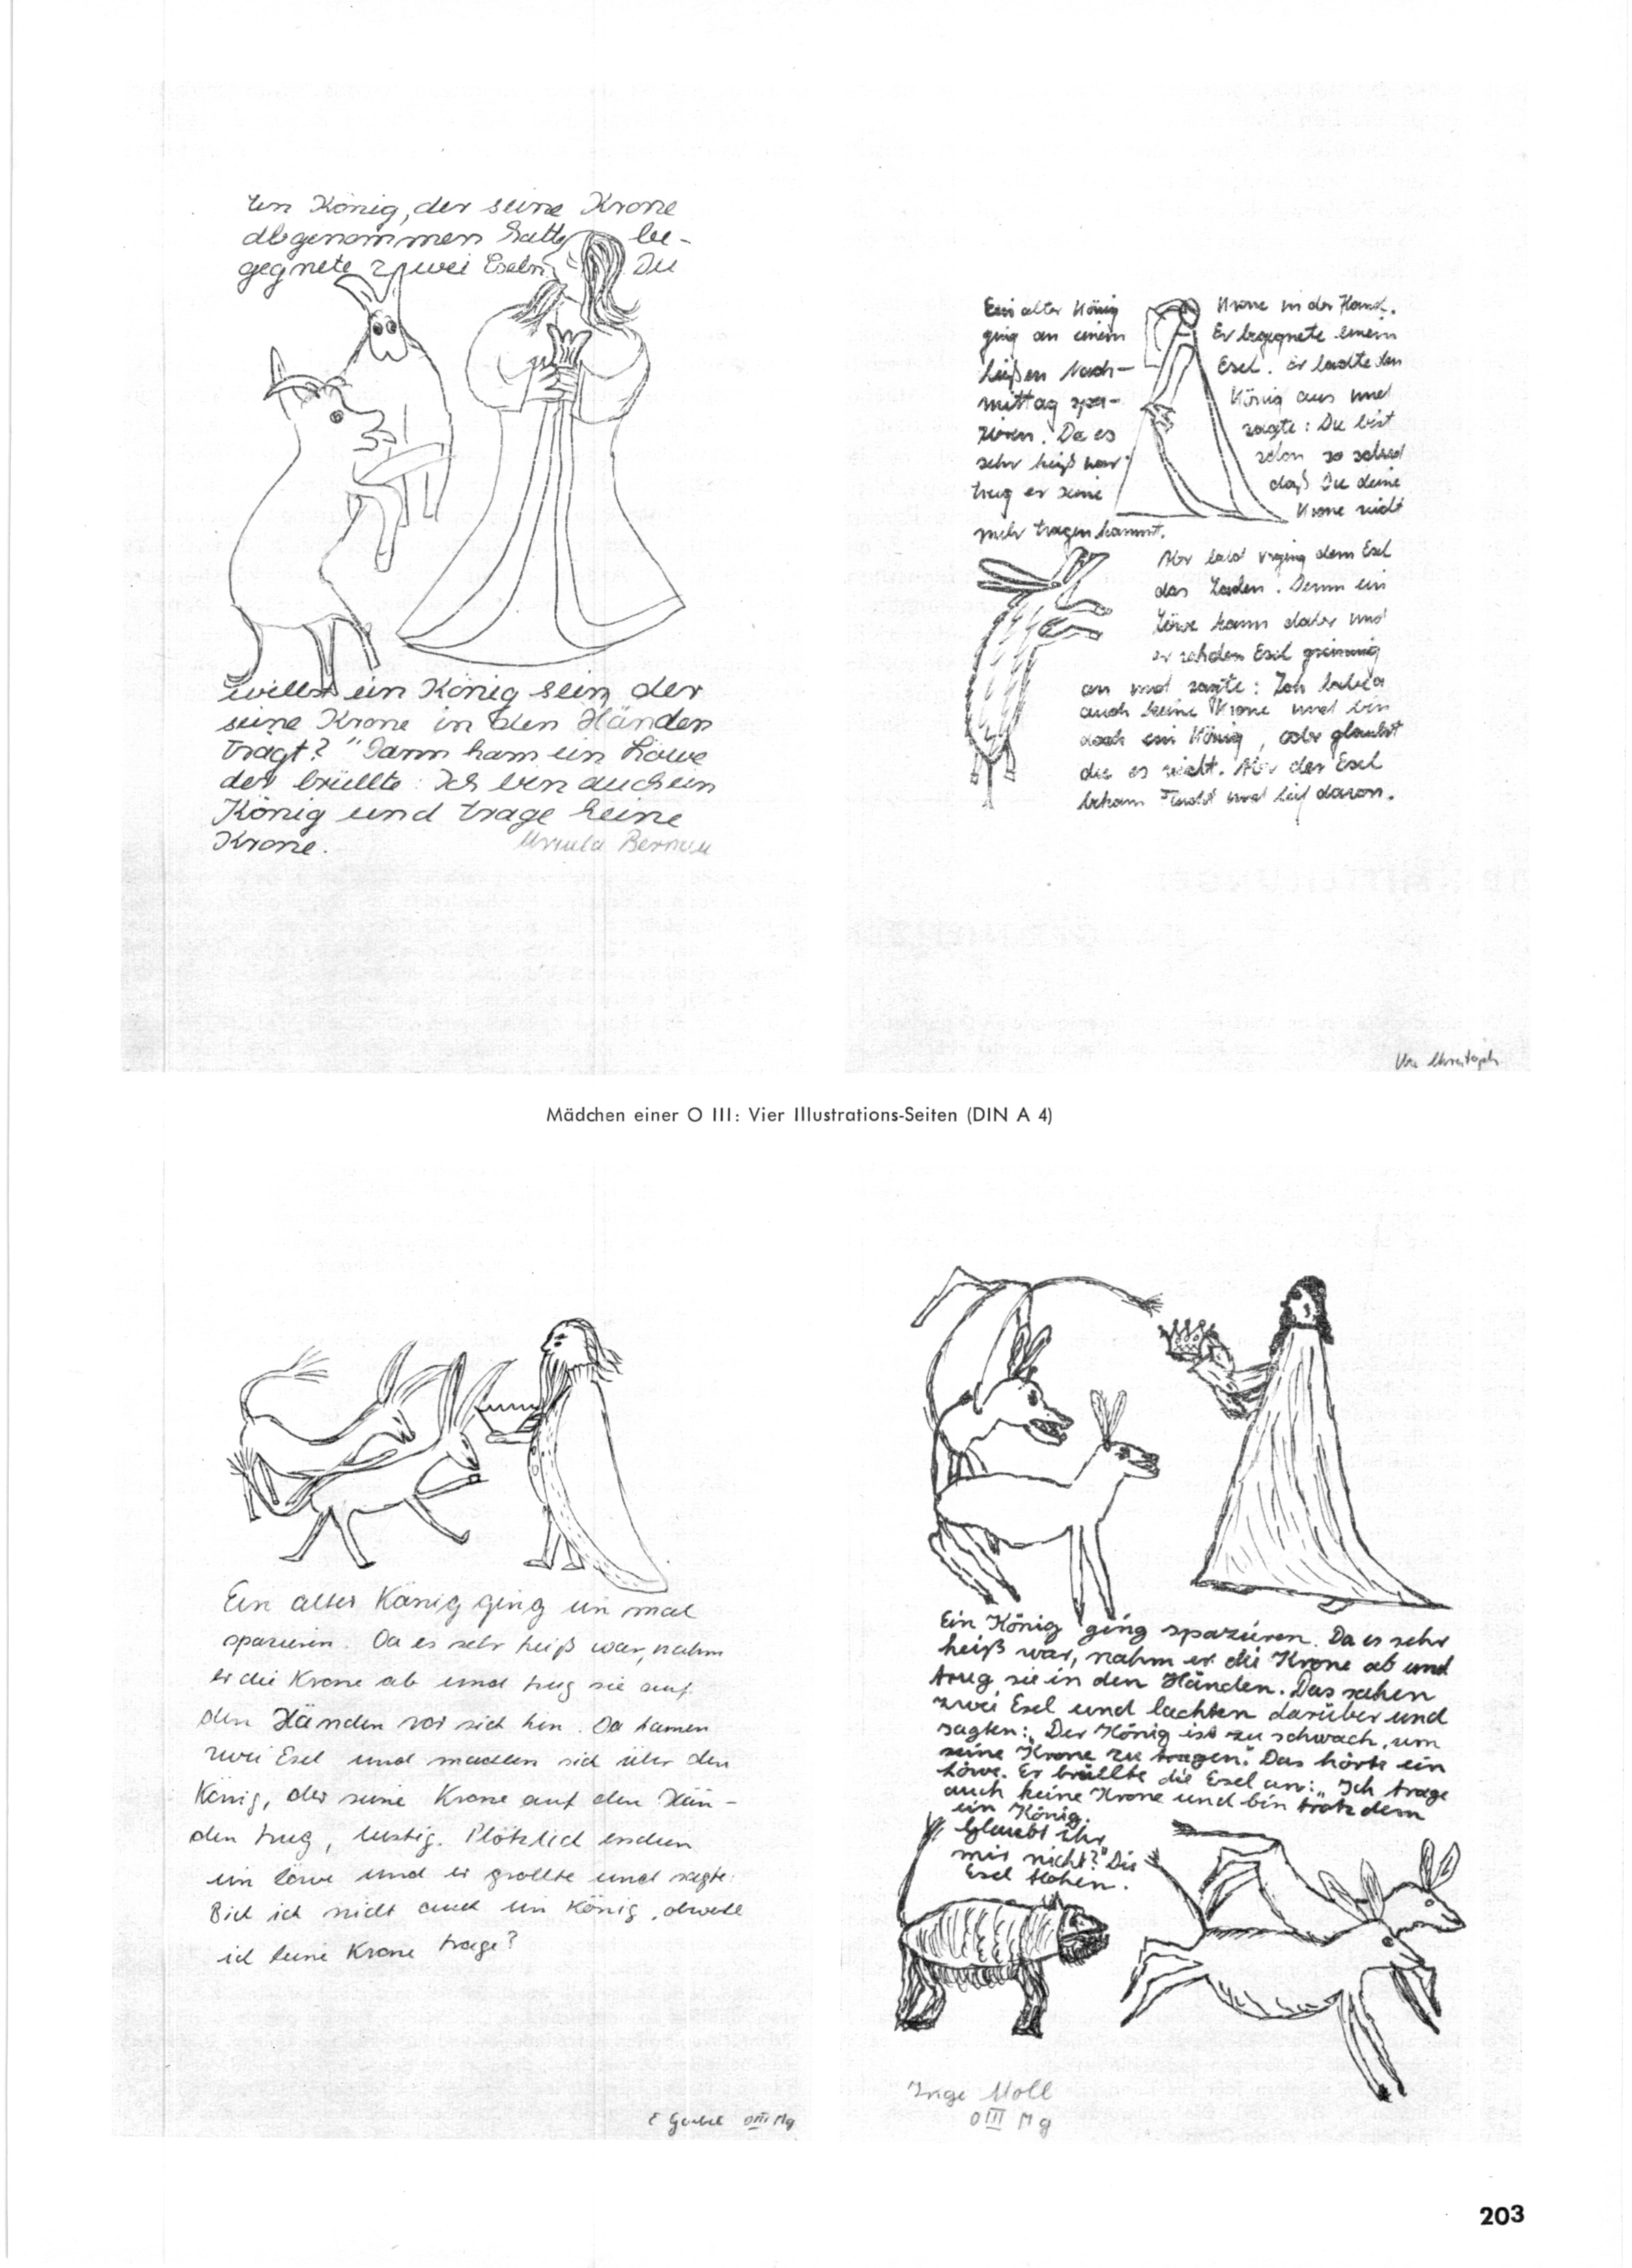 Ein König, der seine Krone
abgenommen hatte, be-
gegnete zwei Eseln. Du
willst ein König sein, der
seine Krone in den Händen
trägt?" Dann kam ein Löwe
der brüllte: Ich bin auch ein
König und trage keine
Krone.
Ursula
Ein alter König
ging an einem
heißen Nach-
mittag spa-
zieren. Da es
sehr heiß war
trug er seine
Krone in der Hand.
Er begegnete einem
Esel. Er lachte den
König aus und
sagte: Du bist
schon so
daß Du deine
Krone nicht
mehr tragen kannst.
Aber bald verging dem Esel
das Lachen. Denn ein
Löwe kam daher und
er sah den Esel grimmig
an und sagte: Ich habe
auch keine Krone und bin
doch ein König, oder glaubst
du es nicht. Aber der Esel
bekam und lief davon.
Mädchen einer O III: Vier Illustrations-Seiten (DIN A 4)
Ein alter König ging ein mal
spazieren. Da es sehr heiß war, nahm
er die Krone ab und trug sie auf
den Händen vor sich hin. Da kamen
zwei Esel und machten sich über den
König, der seine Krone auf den Hän-
den trug, lustig. Plötzlich erschien
ein Löwe und er grollte und sagte:
Bin ich nicht auch ein König, obwohl
ich keine Krone trage?
E O III Mg
Ein König ging spazieren. Da es sehr
heiß war, nahm er die Krone ab und
trug sie in den Händen. Das sahen
zwei Esel und lachten darüber und
sagten: „Der König ist zu schwach, um
seine Krone zu tragen." Das hörte ein
Löwe. Er brüllte die Esel an: „Ich trage
auch keine Krone und bin trotzdem
ein König.
Glaubt ihr
mir nicht?" Die
Esel flohen.
Inge Moll
O III Mg
203